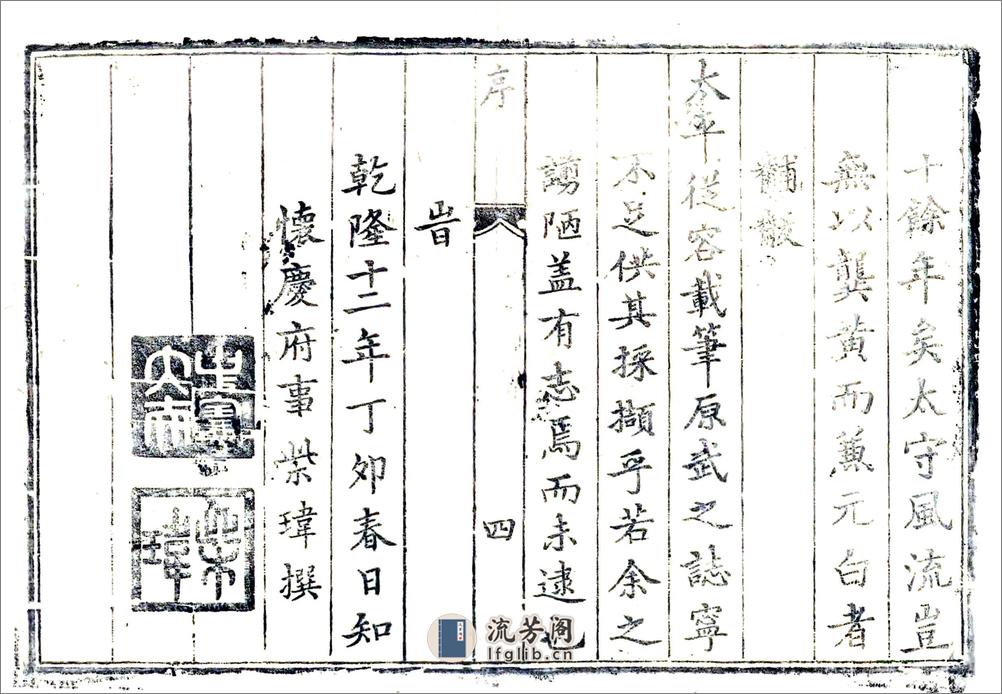 十餘年矣太守風流豈
無以龔黃而兼元白者
黼黻
太平從容載筆原武之誌寧
不足供其採擷乎若余之
譾陋盖有志焉而未逮也
序 四
旹
乾隆十二年丁夘春日知
懷慶府事柴瑋撰
中憲大夫
柴瑋
流芳阁
lfglib.cn